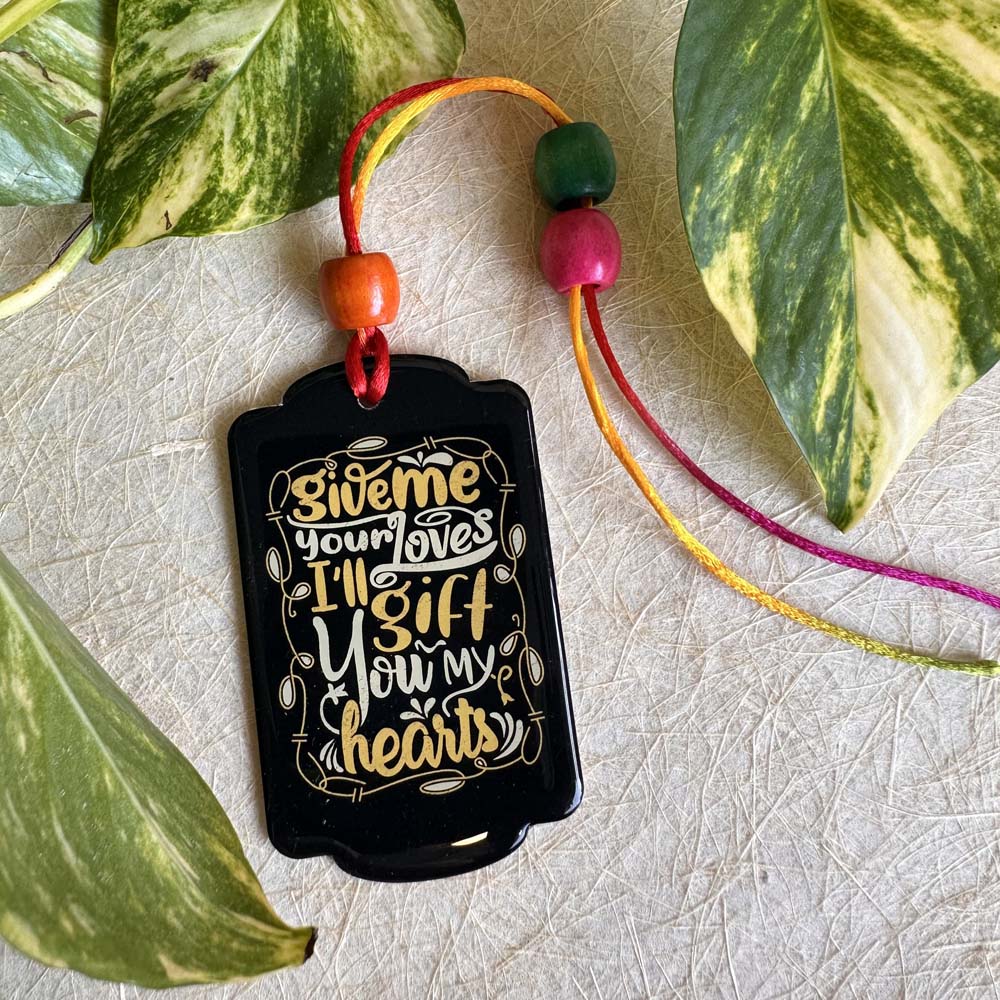 give me
your Loves
I'll gift
You my
hearts